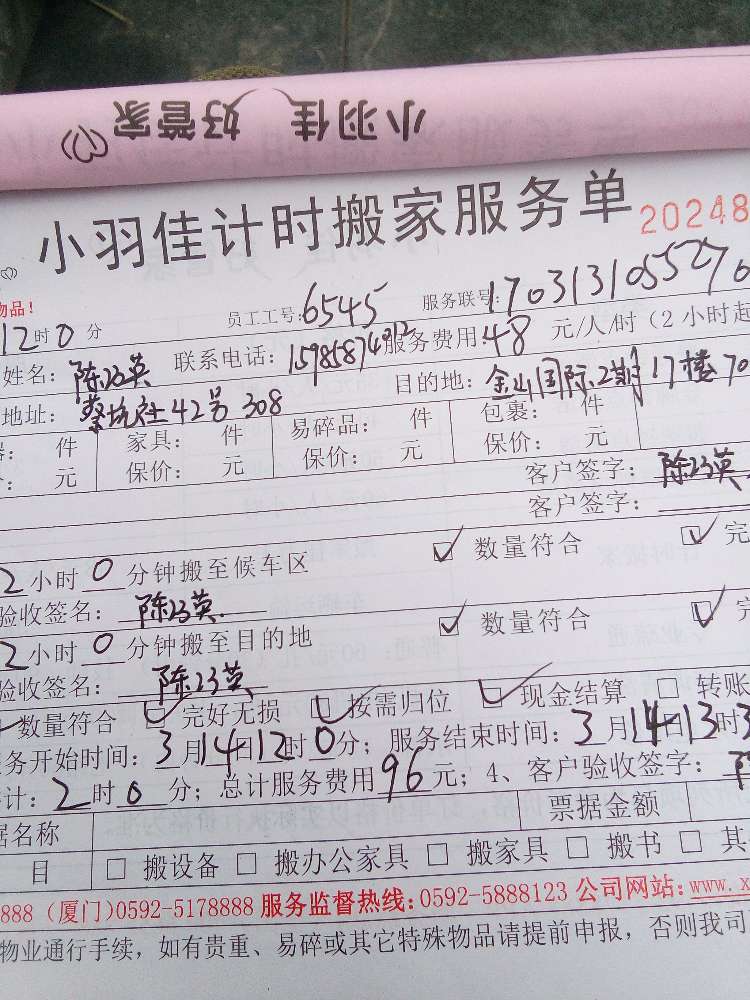 小羽佳 好管家
小羽佳计时搬家服务单 20248
物品！
员工工号：6545 服务联号：1703131055276
12时0分
姓名：陈巧英 联系电话：15985874212 服务费用：48 元/人/时（2小时起
地址：蔡坑社42号308 目的地：金山国际2期17楼70
件 家具： 件 易碎品： 件 包裹： 件
元 保价： 元 保价： 元 保价： 元
客户签字：陈巧英
客户签字：
2小时0分钟搬至候车区 数量符合 完
验收签名：陈巧英
2小时0分钟搬至目的地 数量符合 完
验收签名：陈巧英
数量符合 完好无损 按需归位 现金结算 转账
务开始时间：3月14日12时0分；服务结束时间：3月14日13时3
计：2时0分；总计服务费用96元；4、客户验收签字：
据名称 票据金额
目 搬设备 搬办公家具 搬家具 搬书 其
888 (厦门)0592-5178888 服务监督热线：0592-5888123 公司网站：www.x
物业通行手续，如有贵重、易碎或其它特殊物品请提前申报，否则我司